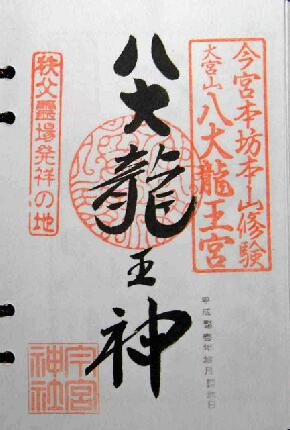 今宮本坊本山修験
大宮山
八大龍王宮
八大龍王神
秩父霊場発祥の地
今宮神社